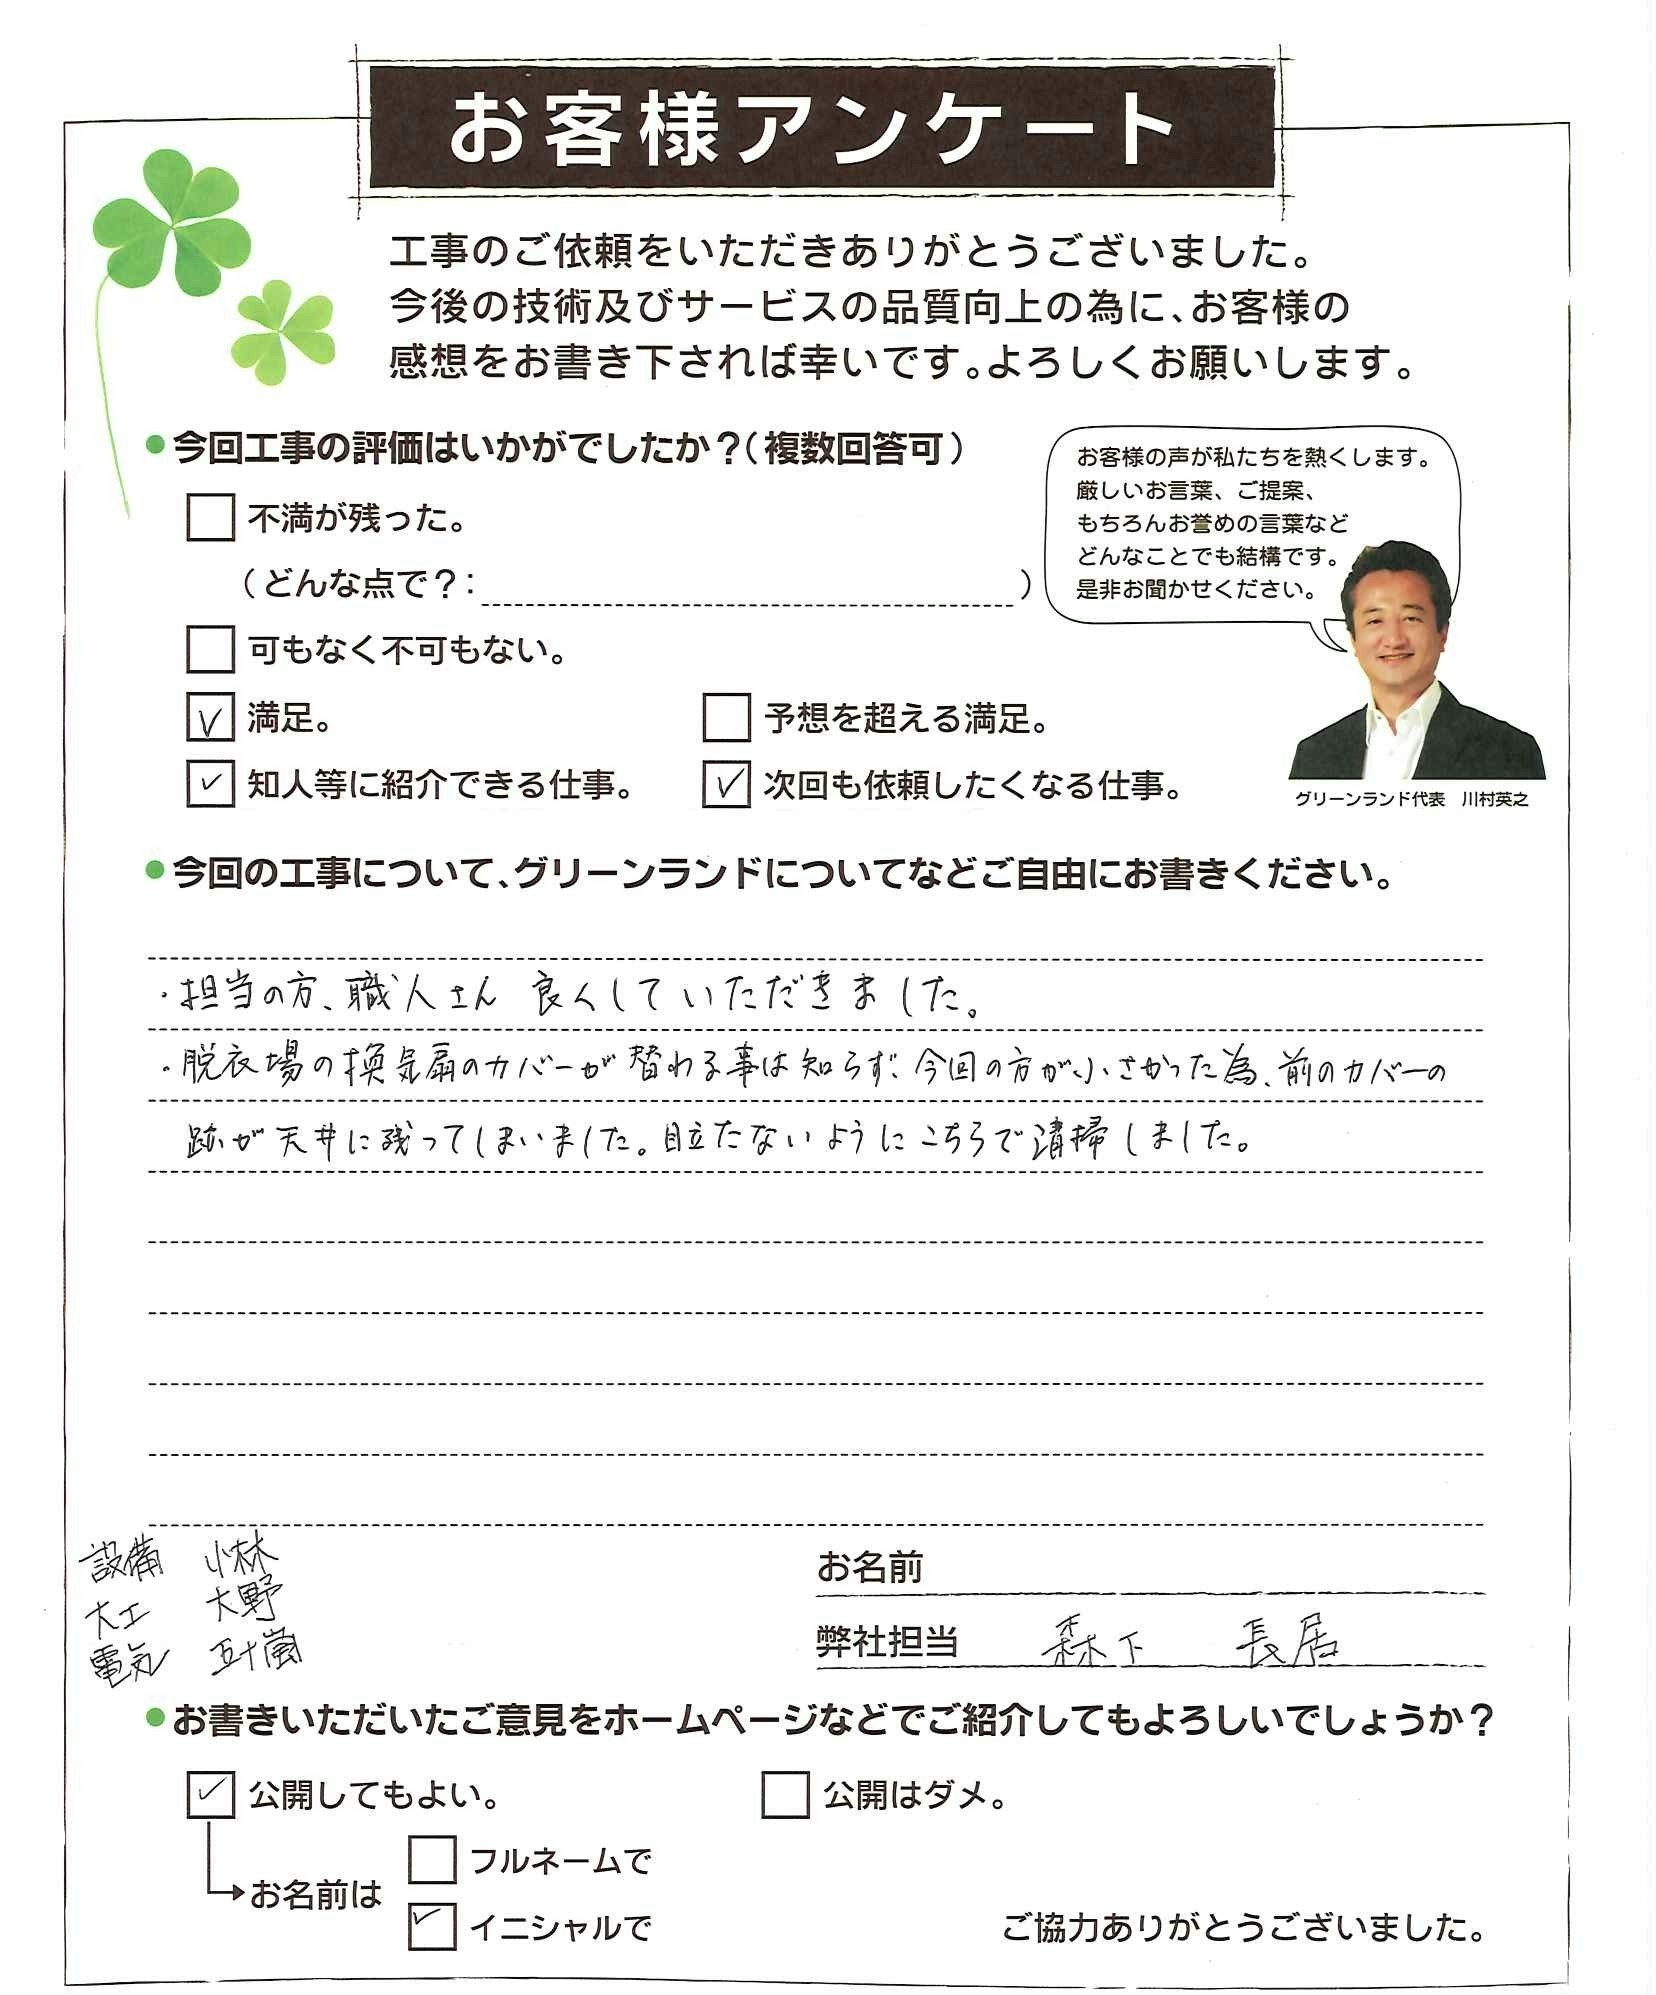 お客様アンケート
工事のご依頼をいただきありがとうございました。
今後の技術及びサービスの品質向上の為に、お客様の
感想をお書き下されば幸いです。よろしくお願いします。
●今回工事の評価はいかがでしたか？（複数回答可）
不満が残った。
（どんな点で？： ）
可もなく不可もない。
満足。
予想を超える満足。
知人等に紹介できる仕事。
次回も依頼したくなる仕事。
お客様の声が私たちを熱くします。
厳しいお言葉、ご提案、
もちろんお誉めの言葉など
どんなことでも結構です。
是非お聞かせください。
グリーンランド代表 川村英之
●今回の工事について、グリーンランドについてなどご自由にお書きください。
・担当の方、職人さん 良くしていただきました。
・脱衣場の換気扇のカバーが替わる事は知らず、今回の方が小さかった為、前のカバーの
跡が天井に残ってしまいました。目立たないようにこちらで清掃しました。
設備 小林
大工 大野
電気 五十嵐
お名前
弊社担当 森下 長居
●お書きいただいたご意見をホームページなどでご紹介してもよろしいでしょうか？
公開してもよい。
公開はダメ。
お名前は
フルネームで
イニシャルで
ご協力ありがとうございました。